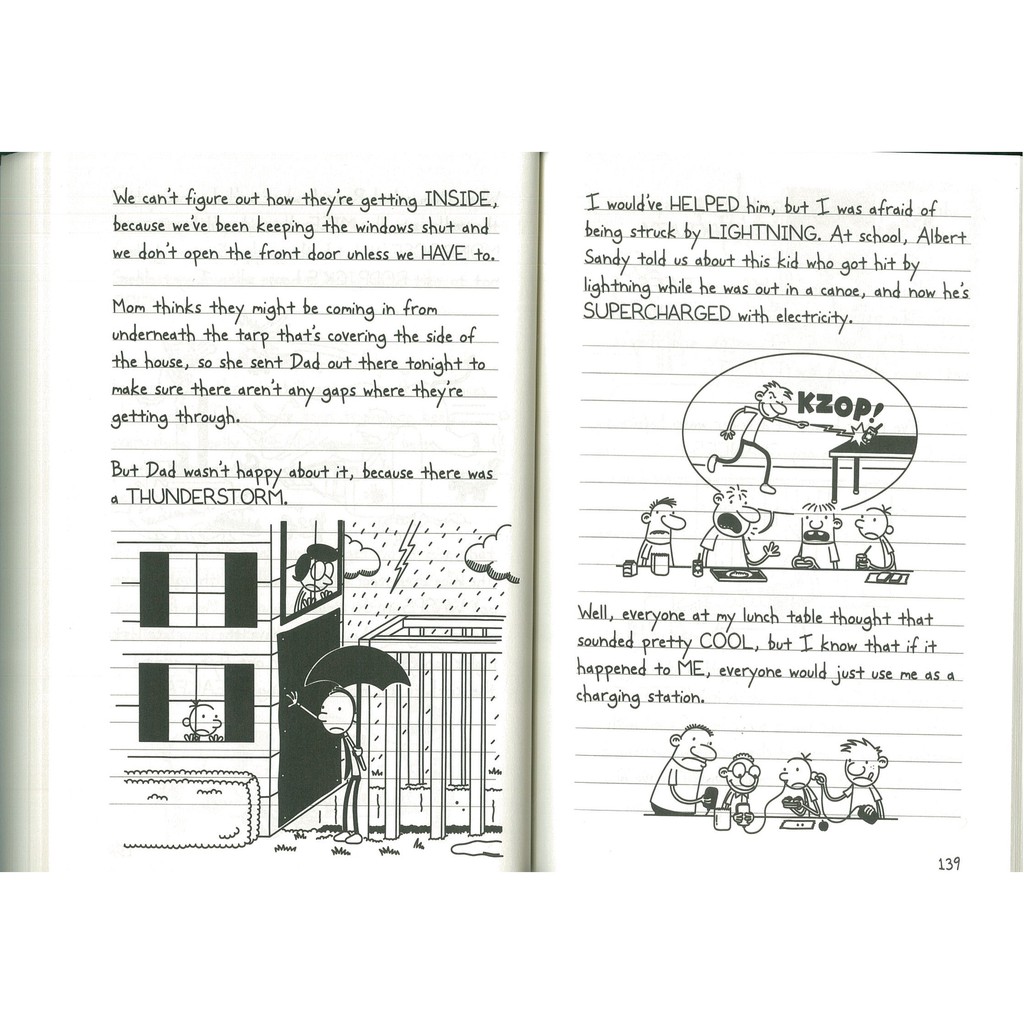 We can't figure out how they're getting INSIDE,
because we've been keeping the windows shut and
we don't open the front door unless we HAVE to.
Mom thinks they might be coming in from
underneath the tarp that's covering the side of
the house, so she sent Dad out there tonight to
make sure there aren't any gaps where they're
getting through.
But Dad wasn't happy about it, because there was
a THUNDERSTORM.
I would've HELPED him, but I was afraid of
being struck by LIGHTNING. At school, Albert
Sandy told us about this kid who got hit by
lightning while he was out in a canoe, and now he's
SUPERCHARGED with electricity.
KZOP!
Well, everyone at my lunch table thought that
sounded pretty COOL, but I know that if it
happened to ME, everyone would just use me as a
charging station.
139